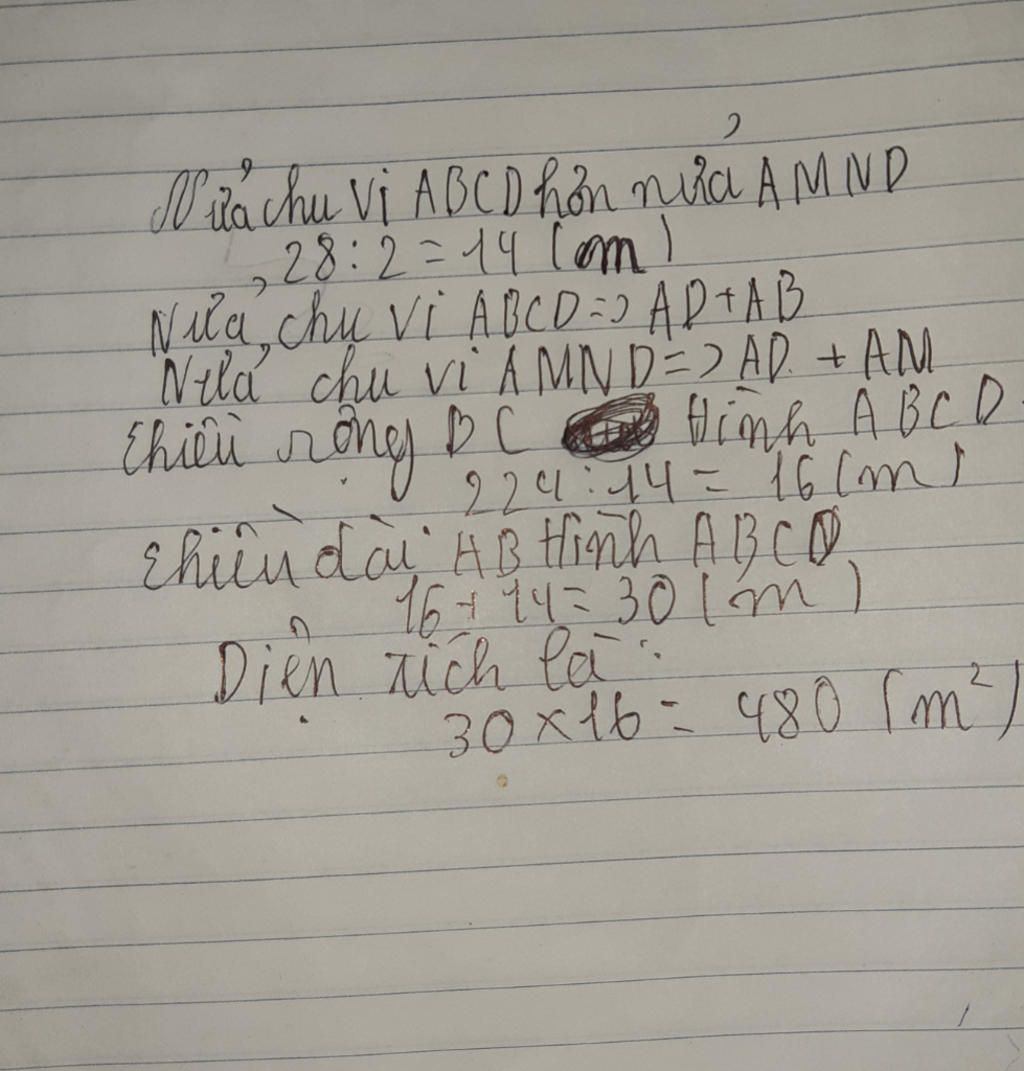 Nửa chu vi ABCD hơn nửa AMND
28 : 2 = 14 (m)
Nửa chu vi ABCD => AD + AB
Nửa chu vi AMND => AD + AM
Chiều rộng BC Hình ABCD
224 : 14 = 16 (m)
Chiều dài AB Hình ABCD
16 + 14 = 30 (m)
Diện tích là :
30 x 16 = 480 (m²)